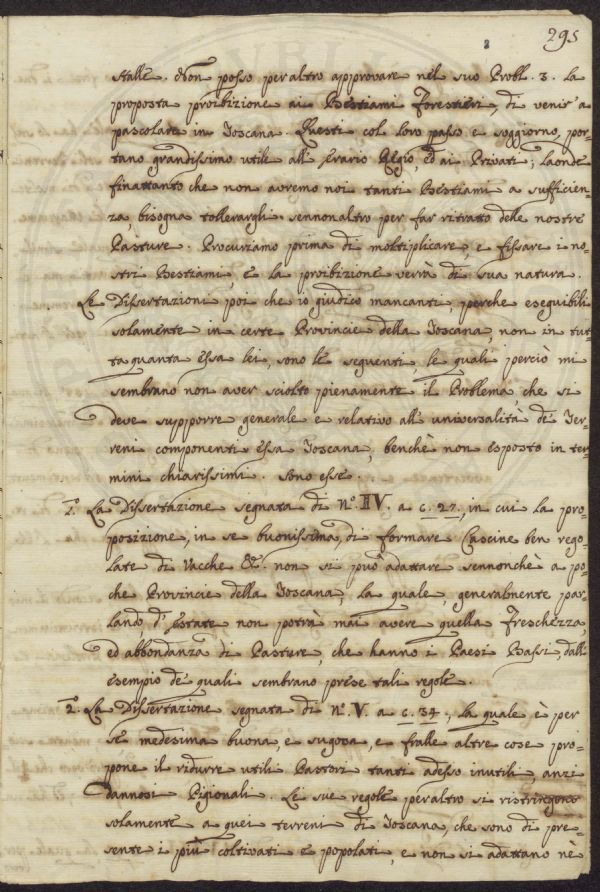 295
stalle. Non posso peraltro approvare nel suo Probl. 3. la
proposta proibizione ai Bestiami Forestieri, di venir a
pascolare in Toscana. Questi col loro passo e soggiorno, por=
tano grandissimo utile all' Erario Regio, ed ai Privati; laonde
finattanto che non avremo noi tanti Bestiami a sufficien=
za bisogna tollerargli sennonaltro per far ritratto delle nostre
Pasture. Procuriamo prima di moltiplicare, e fissare i no=
stri Bestiami, e la proibizione verrà di sua natura.
Le Dissertazioni poi che io giudico mancanti, perche eseguibili
solamente in certe Provincie della Toscana, non in tut=
ta quanta essa lei, sono le seguenti, le quali perciò mi
sembrano non aver sciolto pienamente il Problema, che si
deve supporre generale e relativo all' universalità de Ter=
reni componenti essa Toscana, benchè non esposto in ter=
mini chiarissimi. Sono esse.
1.° La Dissertazione segnata di N.° IV. a c. 27., in cui la pro=
posizione, in se buonissima, di formare Cascine ben rego=
late di Vacche &c. non si può adattare sennonchè a po=
che Provincie della Toscana, la quale, generalmente par=
lando d' Estate non potrà mai avere quella freschezza,
ed abbondanza di Pasture, che hanno i Paesi Bassi, dall'
esempio de quali sembrano prese tali regole.
2.° La Dissertazione segnata di N.° V. a c. 34., la quale è per
se medesima buona, e sugosa, e fralle altre cose pro=
pone il ridurre utili Pastori tanti adesso inutili, anzi
dannosi Pigionali. Le sue regole peraltro si ristringono
solamente a quei terreni di Toscana, che sono di pre=
sente i più coltivati e popolati, e non si adattano nè